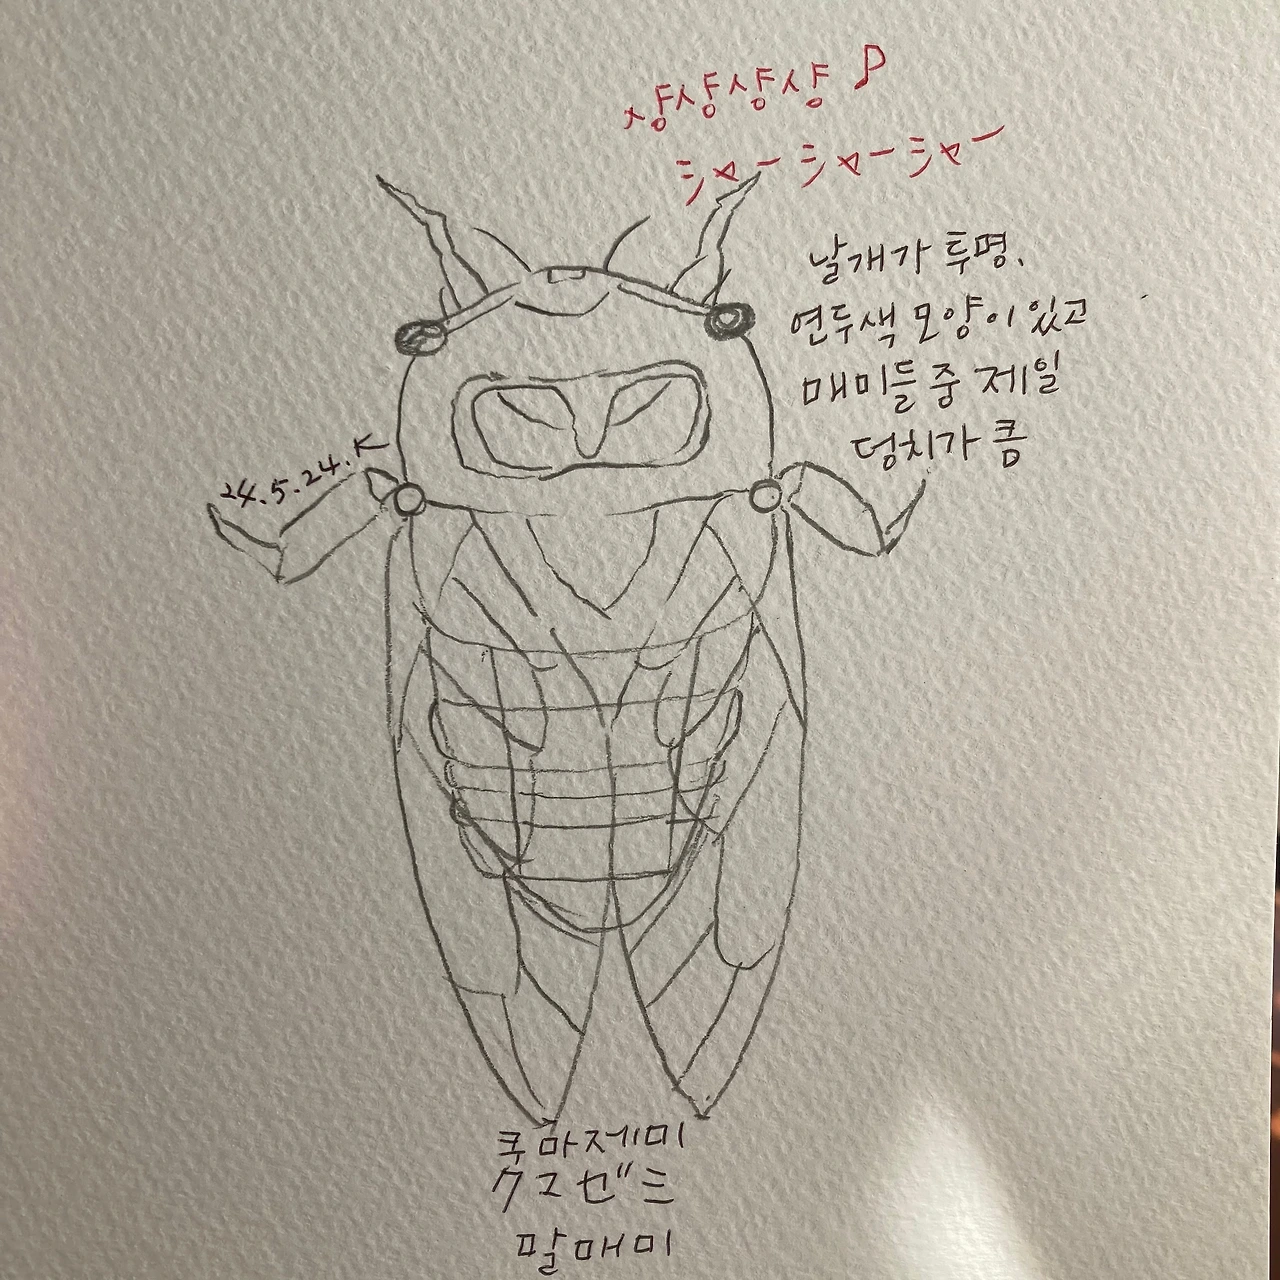 샹샹샹샹♪
シャーシャーシャー
날개가 투명.
연두색 모양이 있고
매미들 중 제일
덩치가 큼
24.5.24.K
쿠마제미
クマゼミ
말매미